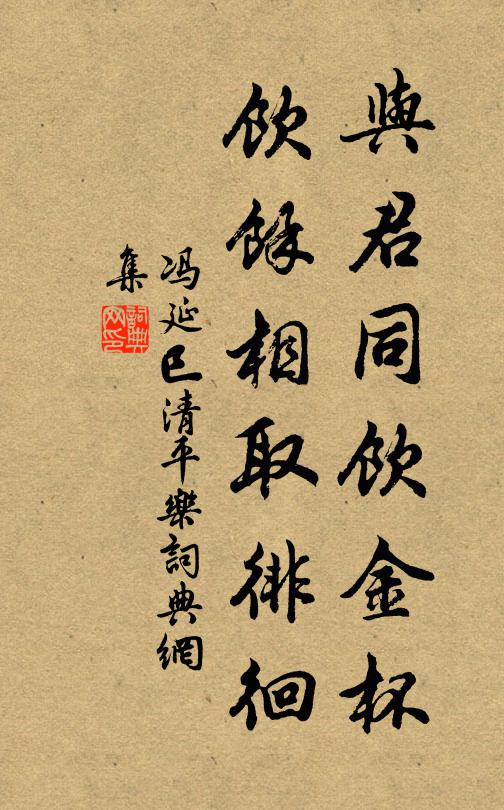 與君同飲金杯
飲餘相取徘徊
冯延巳清平樂詞典網
集
詞典網印